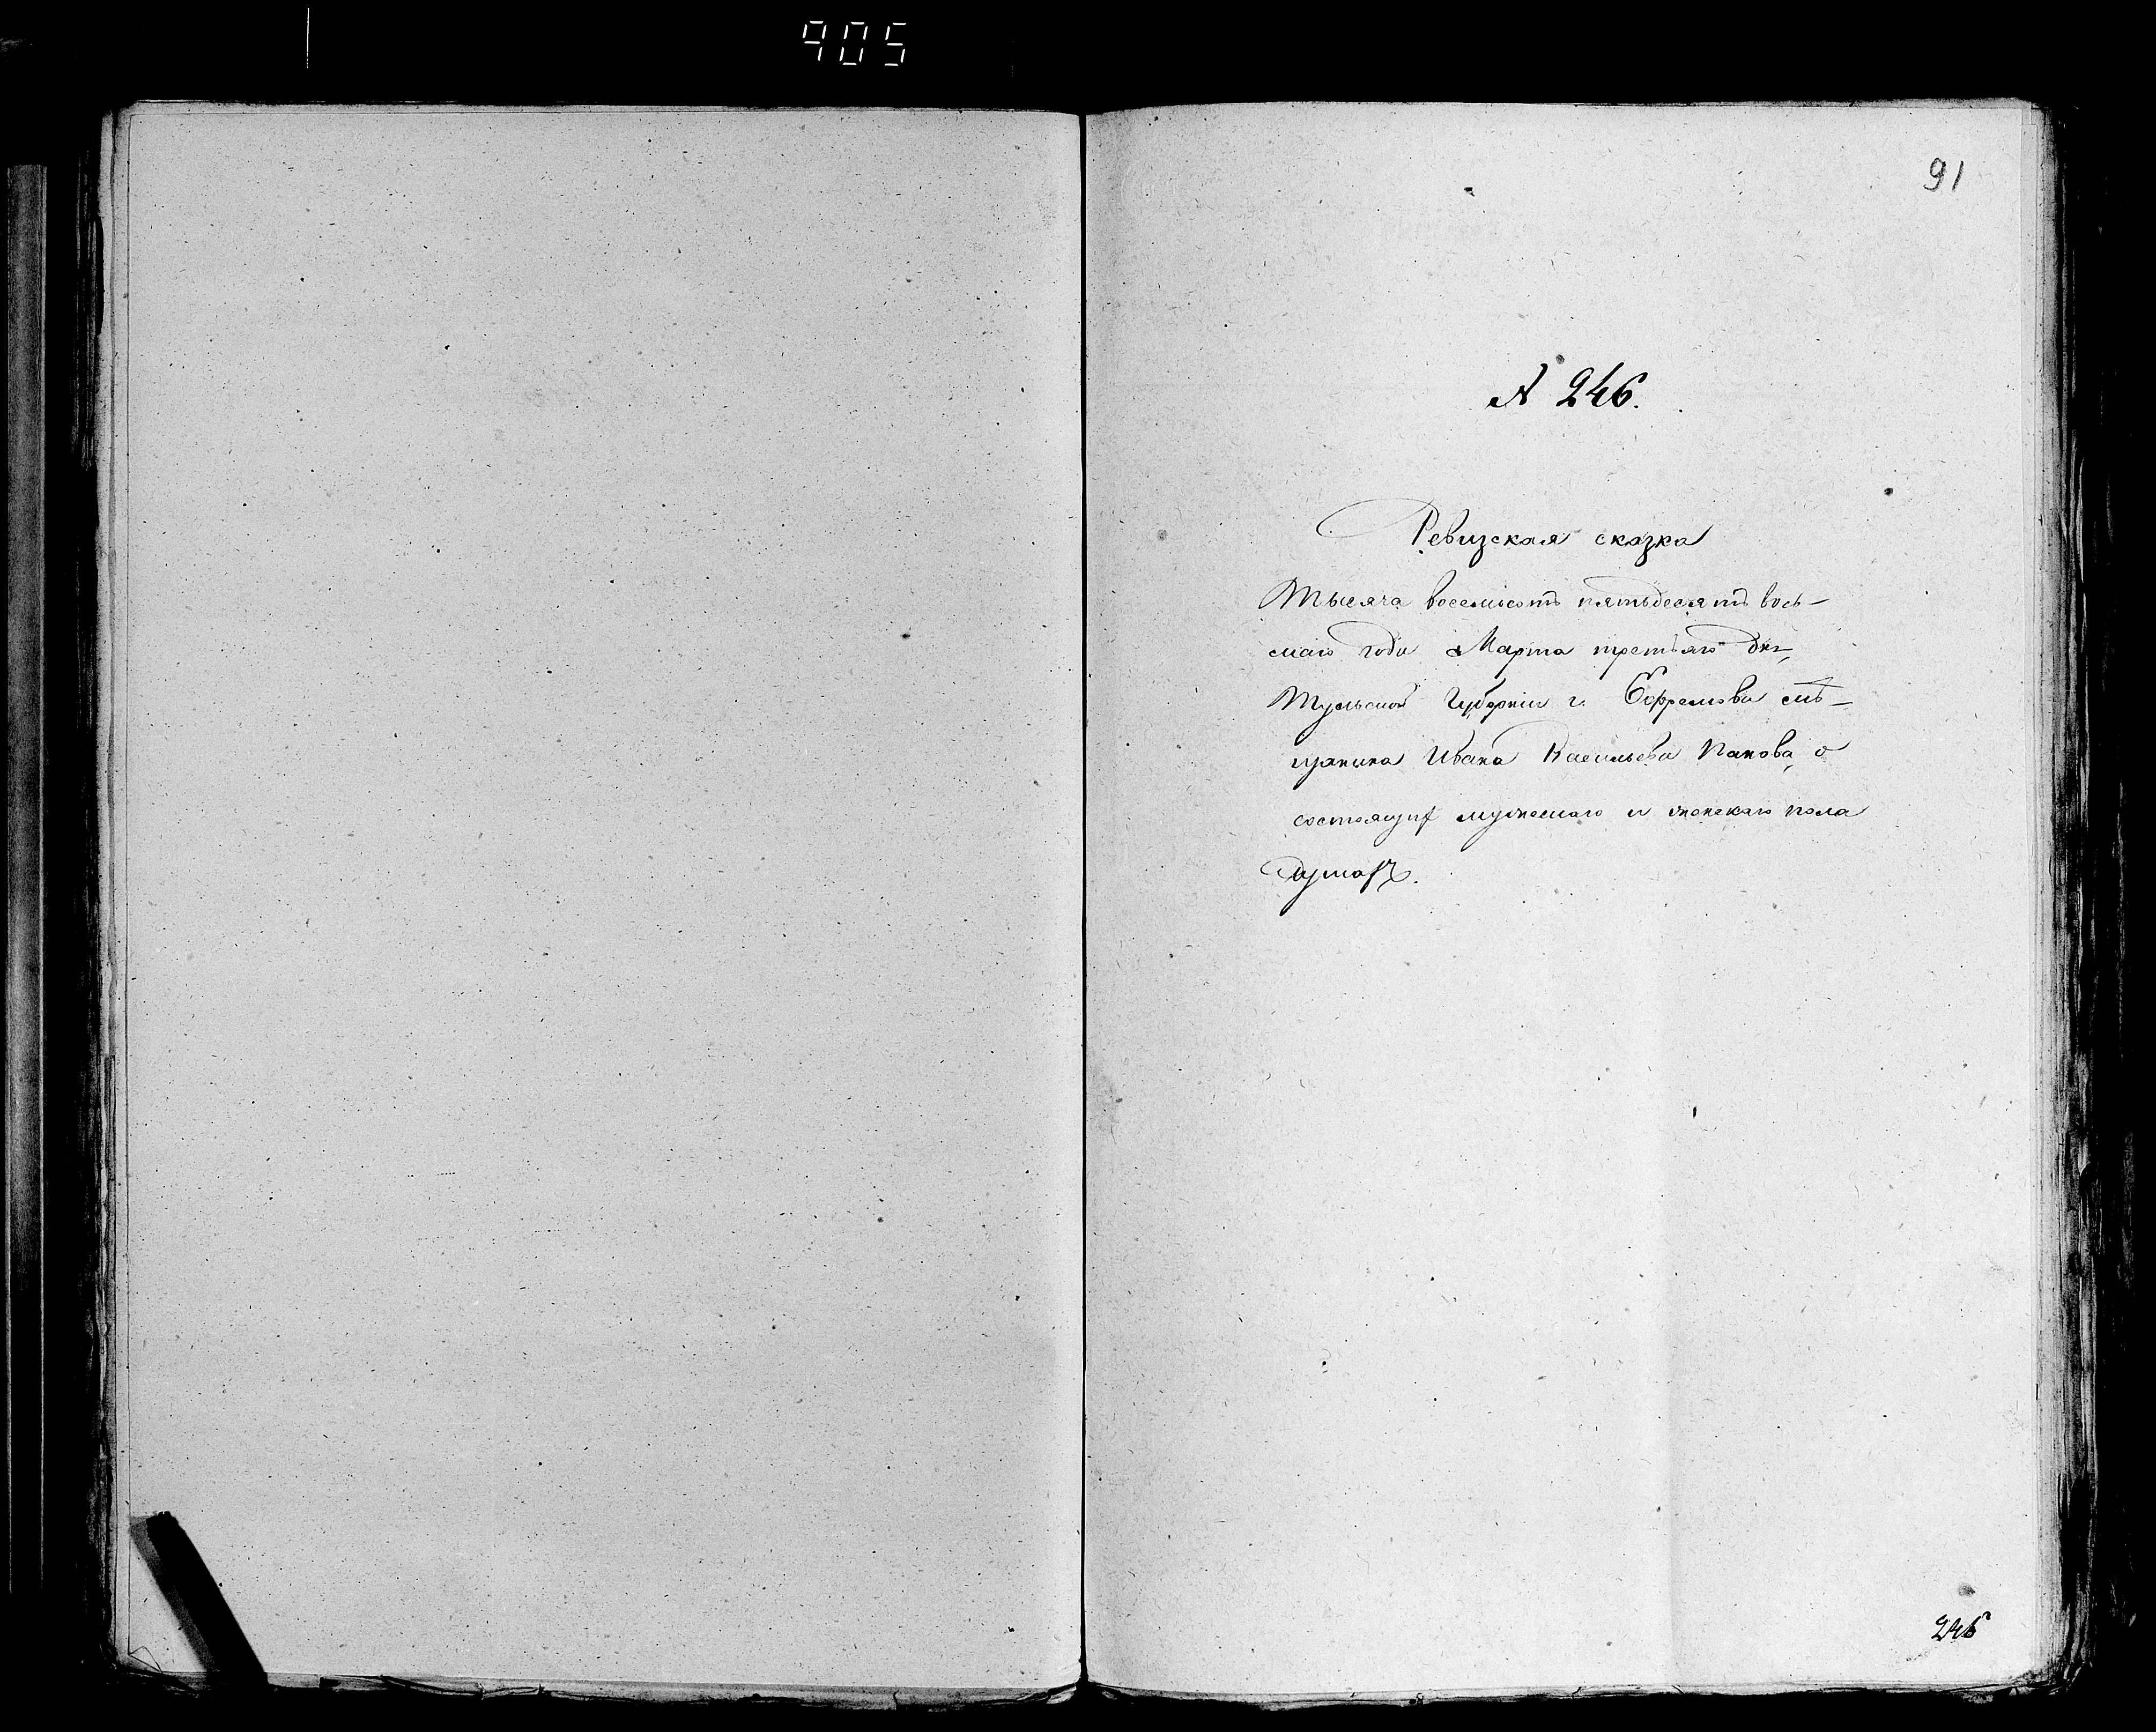 905
91
№ 246.
Ревизская сказка
Тысяча восемьсотъ пятьдесятъ вось-
маго года Марта третьяго дня,
Тульской Губерніи г. Ефремова мѣ-
щанина Ивана Васильева Попова, о
состоящихъ мужескаго и женскаго пола
душахъ.
246